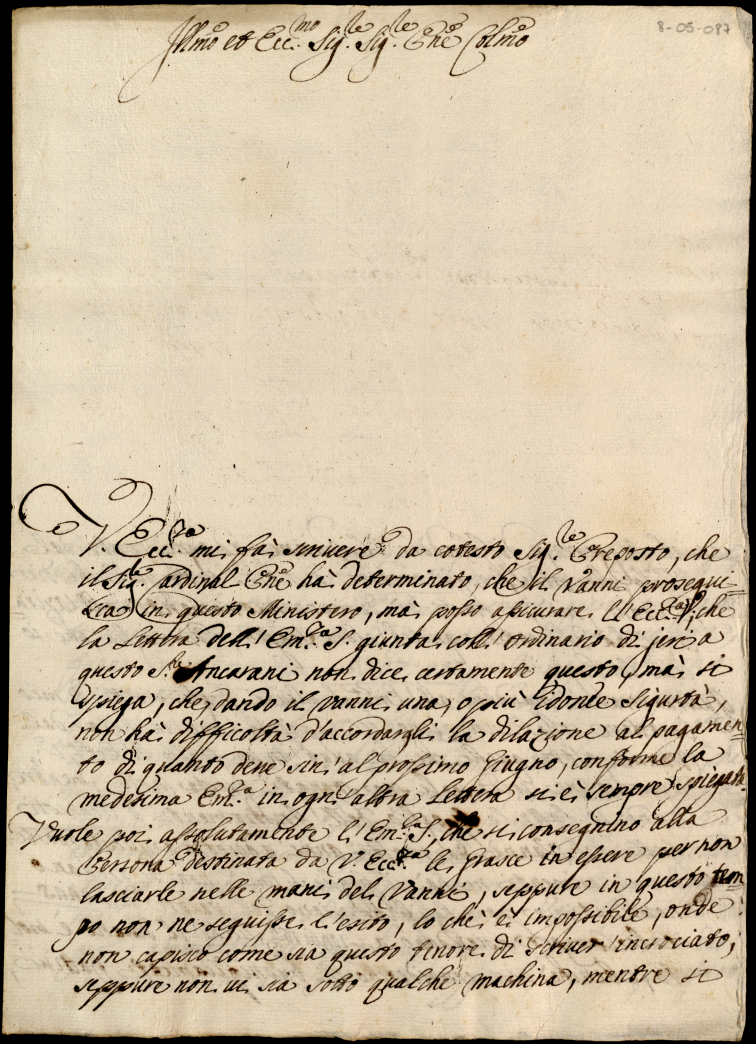 8-05-087
Illmo et Ecc.mo Sig.le Sig.le Pñe Colmo
V. Ecc.za mi fà scrivere da cotesto Sig.le Preposto, che
il Sig.le Cardinal Pñe hà determinato, che il Vanni prosegui=
sca in questo Ministero, mà posso assicurare l'Ecc.za V., che
la Lettera dell'Em.za S. giunta coll'ordinario di jeri a
questo S.le Ancarani non dice certamente questo, mà si
spiega, che dando il Vanni una, o più idonee sigurtà,
non hà difficoltà d'accordargli la dilazione al pagamen=
to di quanto deve sin'al prossimo Giugno, conforme la
medesima Em.a in ogn'altra Lettera si è sempre spiegata.
Vuole poi assolutamente l'Em.za S., che si consegnino alla
Persona destinata da V. Ecc.za le Grasce in essere per non
lasciarle nelle mani del Vanni, seppure in questo tem=
po non ne seguisse l'esito, lo che è impossibile, onde
non capisco come sia questo tenore di scriver incrociato,
seppure non vi sia sotto qualche machina, mentre si